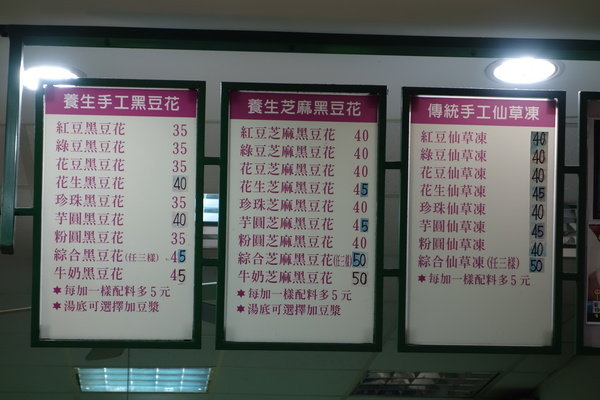 養生手工黑豆花
紅豆黑豆花 35
綠豆黑豆花 35
花豆黑豆花 35
花生黑豆花 40
珍珠黑豆花 35
芋圓黑豆花 40
粉圓黑豆花 35
綜合黑豆花(任三樣) 45
牛奶黑豆花 45
✱每加一樣配料多5元
✱湯底可選擇加豆漿
養生芝麻黑豆花
紅豆芝麻黑豆花 40
綠豆芝麻黑豆花 40
花豆芝麻黑豆花 40
花生芝麻黑豆花 45
珍珠芝麻黑豆花 40
芋圓芝麻黑豆花 45
粉圓芝麻黑豆花 40
綜合芝麻黑豆花(任三樣) 50
牛奶芝麻黑豆花 50
✱每加一樣配料多5元
✱湯底可選擇加豆漿
傳統手工仙草凍
紅豆仙草凍 40
綠豆仙草凍 40
花豆仙草凍 40
花生仙草凍 45
珍珠仙草凍 40
芋圓仙草凍 45
粉圓仙草凍 40
綜合仙草凍(任三樣) 50
✱每加一樣配料多5元